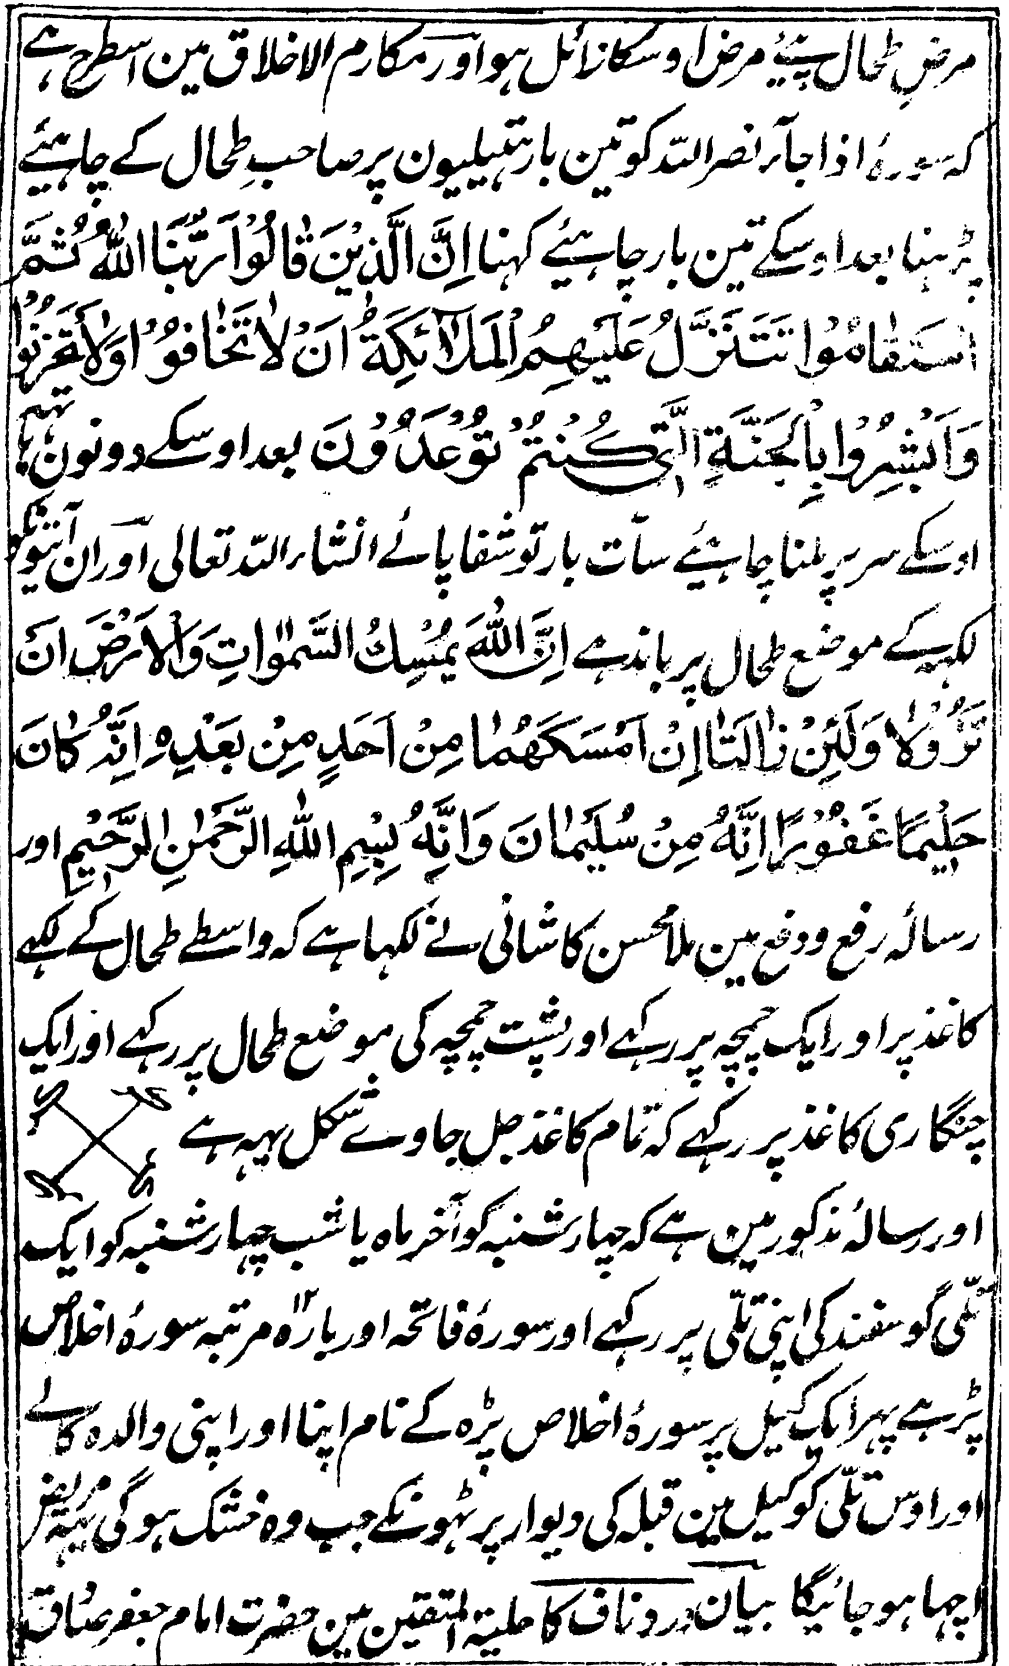 مرض طحال پیئے مرض اوسکا زائل ہو اور مکارم الاخلاق مین اسطرح ہے
کہ سورۂ اذا جآء نصر اللہ کو تین بار ہتیلیون پر صاحب طحال کے چاہئیے
پڑہنا بعد اوسکے تین بار چاہئیے کہنا اِنَّ الَّذِیْنَ قَالُوْا رَبُّنَا اللّٰہُ ثُمَّ
اسْتَقَامُوْا تَتَنَزَّلُ عَلَیْهِمُ الْمَلَآئِکَةُ اَنْ لَا تَخَافُوْا وَلَا تَحْزَنُوْا
وَاَبْشِرُوْا بِالْجَنَّةِ الَّتِیْ کُنْتُمْ تُوْعَدُوْنَ بعد اوسکے دونون ہاتہہ
اوسکے سر پر ملنا چاہئیے سات بار تو شفا پائے انشاء اللہ تعالی اور ان آیتونکو
لکہہ کے موضع طحال پر باندہے اِنَّ اللّٰہَ یُمْسِكُ السَّمٰوٰاتِ وَالْاَرْضَ اَنْ
تَزُوْلَا وَلَئِنْ زَالَتَا اِنْ اَمْسَکَهُمَا مِنْ اَحَدٍ مِنْ بَعْدِہٖ اِنَّہُ کَانَ
حَلِیْمًا غَفُوْرًا اِنَّهُ مِنْ سُلَیْمَانَ وَاِنَّهُ بِسْمِ اللّٰہِ الرَّحْمٰنِ الرَّحِیْمِ اور
رسالہ رفع و دفع مین ملا محسن کاشانی نے لکہا ہے کہ واسطے طحال کے لکہے
کاغذ پر اور ایک چمچہ پر رکہے اور پشت چمچہ کی موضع طحال پر رکہے اور ایک
چنگاری کاغذ پر رکہے کہ تمام کاغذ جل جاوے شکل یہہ ہے
اور رسالۂ مذکور مین ہے کہ چہار شنبہ کو آخر ماہ یا شب چہار شنبہ کو ایک
تلّی گوسفند کی اپنی تلّی پر رکہے اور سورۂ فاتحہ اور بارہ ۱۲ مرتبہ سورۂ اخلاص
پڑہے پہر ایک کیل پر سورۂ اخلاص پڑہ کے نام اپنا اور اپنی والدہ کا لے
اور اوس تلّی کو کیل مین قبلہ کی دیوار پر ٹہونکے جب وہ خشک ہوگی یہہ مریض
اچہا ہو جائیگا بیان درد ناف کا حلیۃ المتقین مین حضرت امام جعفر صادق